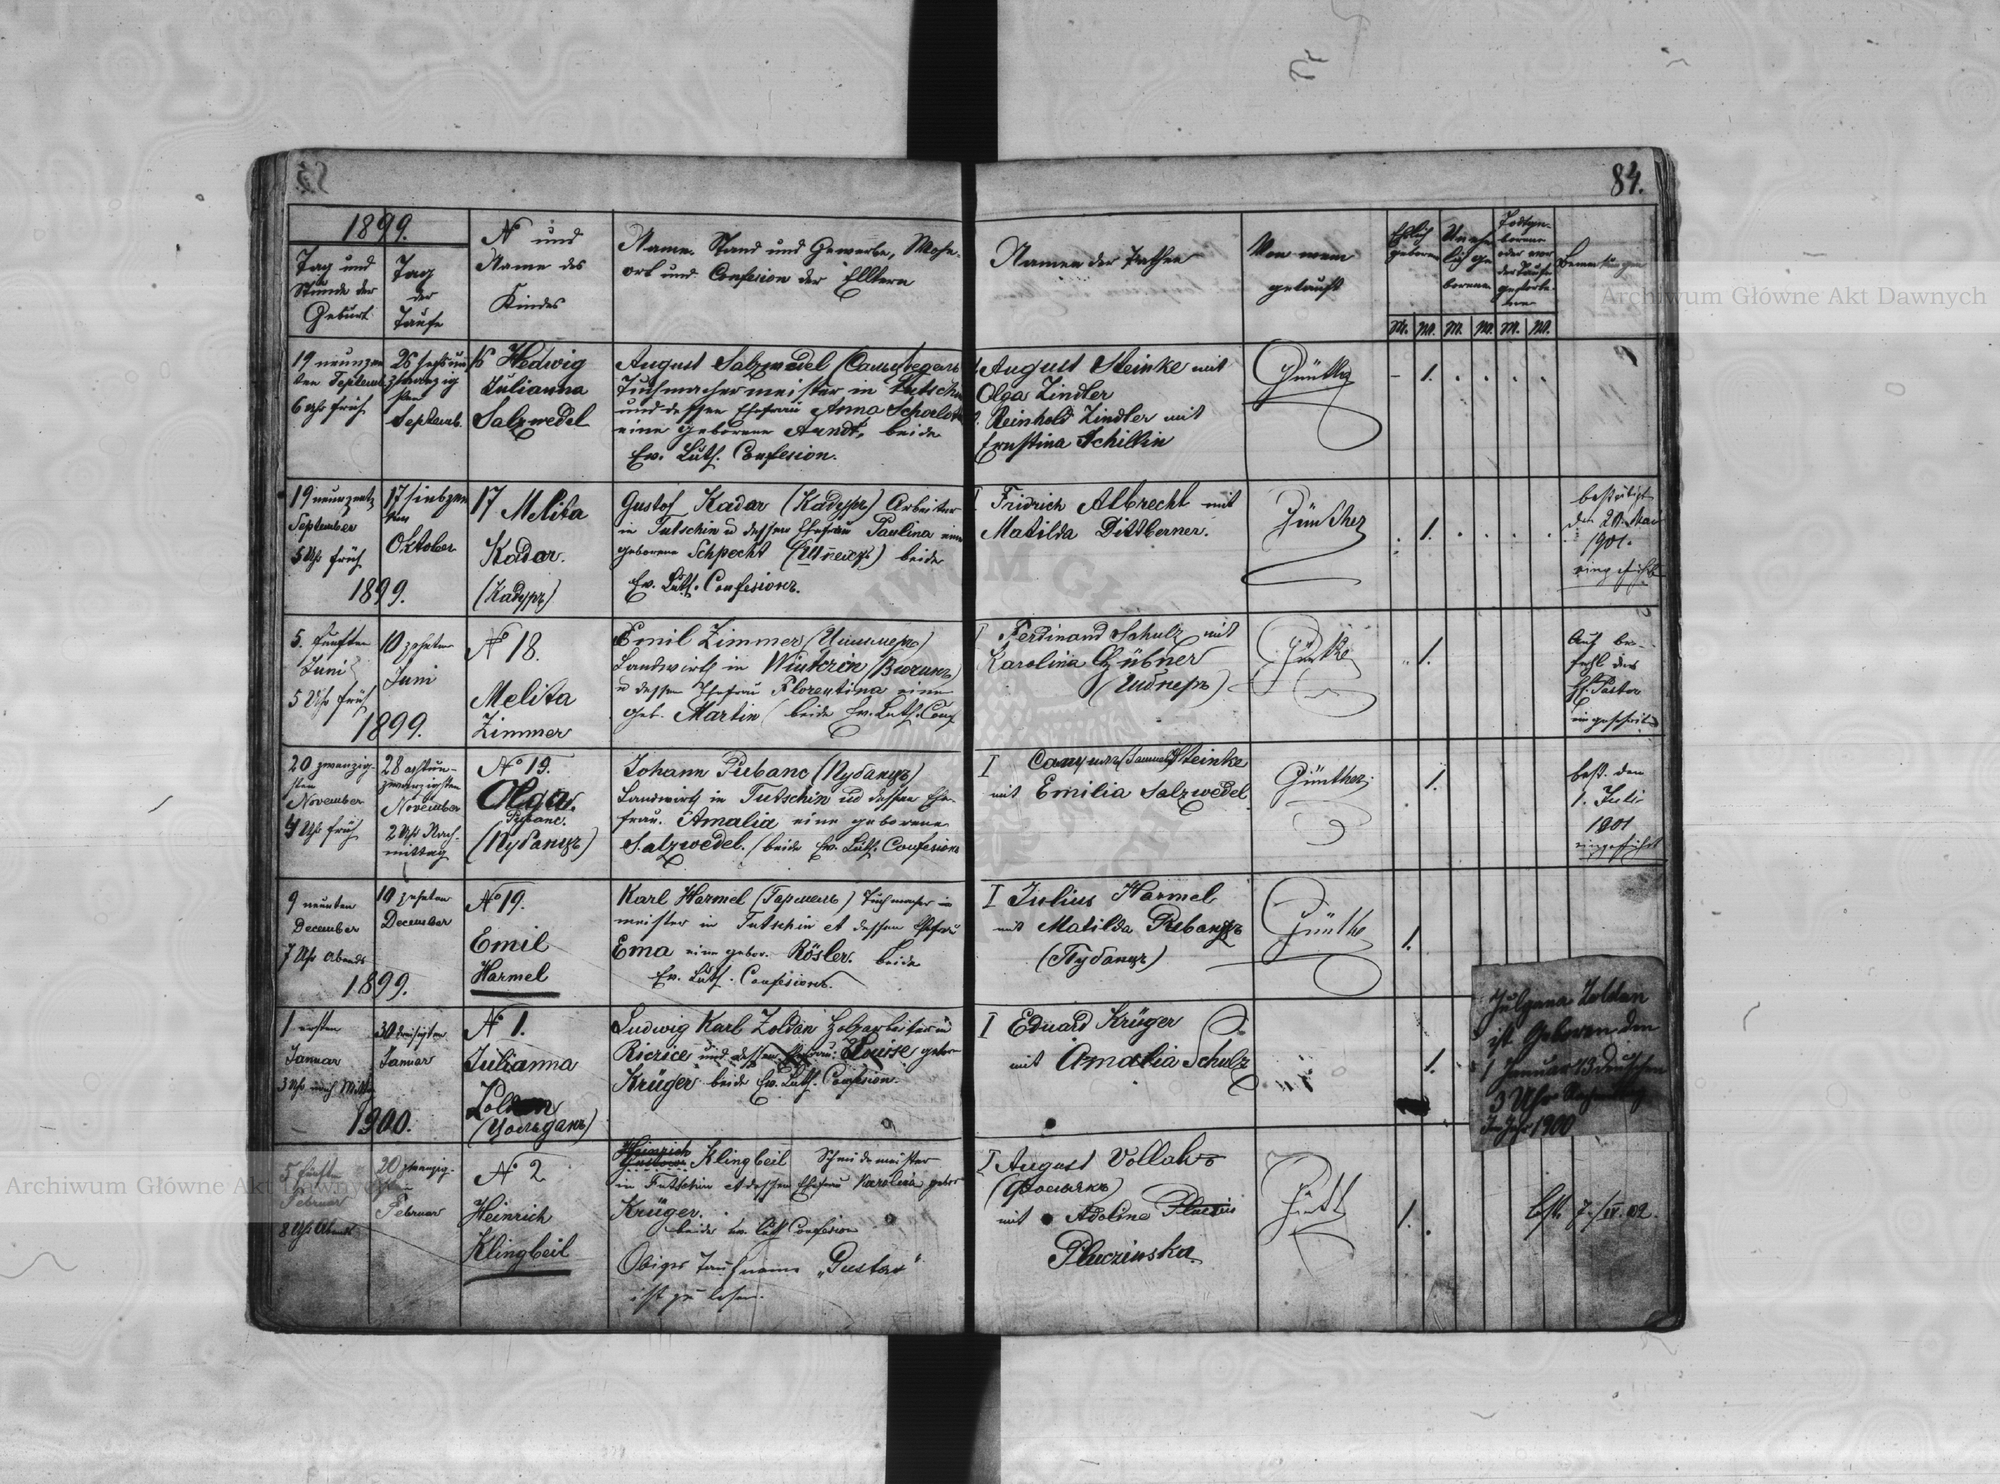 84.
1899.
Tag und
Stunde der
Geburt
Tag
der
Taufe
N und
Name des
Kindes
Name. Stand und Gewerbe, Wohn-
ort und Confesion der Elltern
Namen der Pathen
Von wem
getauft
Ehlich
geboren
Unehe
lich ge
boren
Todtge-
borene
oder vor
der Taufe
gestorbe
ne
Bemerkungen
M. W. M. W. M. W.
19 neunzen
ten Septemb.
6 Uhr früh
26 sechsun
zwanzig
sten
Septemb.
16 Hedwig
Julianna
Salzwedel
August Salzwedel
Tuchmachermeister in Tutschin
und dessen Ehefrau Anna
eine geborene Arndt, beide
Ev. Luth. Confesion.
1 August Steinke mit
Olga Zindler
2. Reinhold Zindler mit
Ernstina Schilkin
1.
19 neunzent
September
5 Uhr früh
1899.
17 siebzen
ten
Oktober
17 Melita
Kadar.
(Кадуръ)
Gustof Kadar (Кадуръ) Arbeiter
in Tutschin u dessen Ehefrau Paulina eine
geborene Schpecht (Шпехтъ) beide
Ev. Luth. Confesions.
I Fridrich Albrecht mit
Matilda Dittberner.
Günther
1.
bestätigt
den 20. Mai
1901.
eingeführt
5. fünften
Juni
5 Uhr früh
1899.
10 zehnten
Juni
N° 18.
Melita
Zimmer
Emil Zimmer (Циммеръ)
Landwirth in
u dessen Ehefrau Florentina eine
geb. Martin / beide Ev. Luth. Conf
I Ferdinand Schulz mit
Karolina Hübner
1.
Auf be-
fehl des
H. Pastor
20 zwanzig-
sten
November
4 Uhr früh
28 achtun-
zwanzigsten
November
2 Uhr Nach-
mittag
N° 19.
Olga
Pubanc.
(Пубанцъ)
Johann Pubanc (Пубанцъ)
Landwirth in Tutschin u dessen Ehe-
frau. Amalia eine geborene
Salzwedel. / beide Ev. Luth. Confesion
I (Samuel) Steinke
mit Emilia Salzwedel
Günther
1.
best. den
1. Juli
1901
eingeführt
9 neunten
December
7 Uhr Abends
1899.
10 zehnten
December
N° 19.
Emil
Harmel
Karl Harmel (Гармель) Tuchmacher
meister in Tutschin et dessen Ehefrau
Ema eine gebor. Rösler. beide
Ev. Luth. Confesions.
I Julius Harmel
mit Matilda
(Пубанцъ)
1.
1 ersten
Januar
3 Uhr nach Mitt
1900.
30 dreisigten
Januar
N° 1.
Julianna
Zoldan
Ludwig Karl Zoldan Holzarbeiter in
und dessen Ehefrau: Louise gebor
Krüger beide Ev. Luth. Confesion.
I Eduard Krüger
mit Amalia Schulz
1.
Julyana Zoldan
ist Geboren den
1 Januar
3 Uhr
Im Jahr 1900
5 fünft
Februar
8 Uhr Abends
20 zwanzig-
Februar
N° 2
Heinrich
Klingbeil
Heinrich
Gustow Klingbeil Schmidemeister
in Tutschin et dessen Ehefrau Karolina gebor
Krüger.
beide Ev. Luth Confesion
Obiger Taufname "Gustav"
ist zu lesen.
I August Vollak
mit Adolina
Pluczinska
1.
best. 7./IV. 02.
Archiwum Główne Akt Dawnych
Archiwum Główne Akt Dawnych